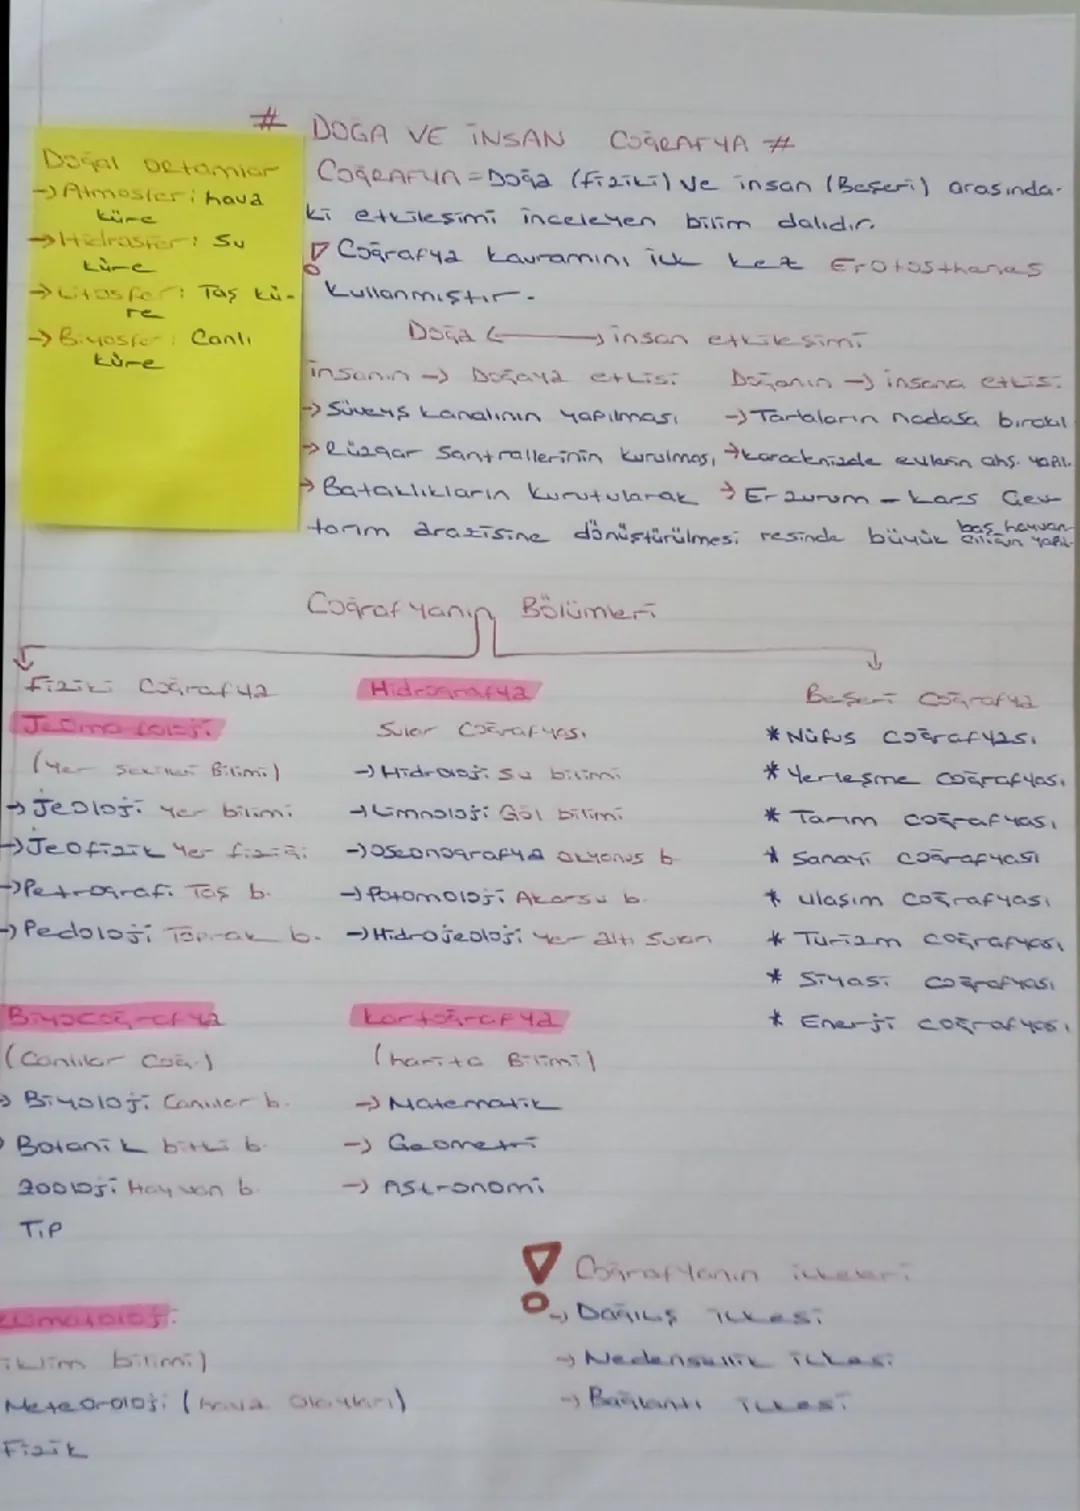 # DOĞA VE İNSAN COĞRAFYA #
COĞRAFYA = Doğa (fiziki) ve insan (Beşeri) arasında-
ki etkileşimi inceleyen bilim dalıdır.
! Coğrafya kavramını ilk kez Erotosthenes
kullanmıştır.
Doğal Ortamlar
→ Atmosfer: hava
küre
→ Hidrosfer: Su
küre
→ Litosfer: Taş kü-
re
→ Biyosfer: Canlı
küre
Doğa ←→ insan etkileşimi
İnsanın → Doğaya etkisi
→ Süveyş kanalının yapılması
→ Rüzgar Santrallerinin kurulması
→ Bataklıkların kurutularak
tarım arazisine dönüştürülmesi
Doğanın → insana etkisi
→ Tarlaların nadasa bırakıl
→ karadenizde evlerin ahş. yapıl.
→ Erzurum - Kars Çev
resinde büyük baş hayvan-
cılığın yapıl-
Coğrafyanın Bölümleri
Fiziki Coğrafya
Jeomorfoloji
(Yer Şekilleri Bilimi)
→ Jeoloji yer bilimi
→ Jeofizik Yer fiziği
→ Petrografi Taş b.
→ Pedoloji Toprak b.
Hidrografya
Sular Coğrafyası
→ Hidroloji Su bilimi
→ Limnoloji Göl bilimi
→ Oseonografya okyanus b
→ Potomoloji Akarsu b.
→ Hidrojeoloji yer altı Suları
Beşeri Coğrafya
* Nüfus coğrafyası
* Yerleşme coğrafyası
* Tarım coğrafyası
* Sanayi coğrafyası
* ulaşım coğrafyası
* Turizm coğrafyası
* Siyasi coğrafyası
* Enerji coğrafyası
Biyocoğrafya
(Canlılar Coğ.)
→ Biyoloji Canlılar b.
Botanik bitki b.
Zooloji Hayvan b.
Tıp
Kartoğrafya
(harita Bilimi)
→ Matematik
→ Geometri
→ Astronomi
Klimatoloji
iklim bilimi)
Meteoroloji (hava olayları)
Fizik
! Coğrafyanın ilkeleri
→ Dağılış ilkesi
→ Nedensellik ilkesi
→ Bağlantı ilkesi